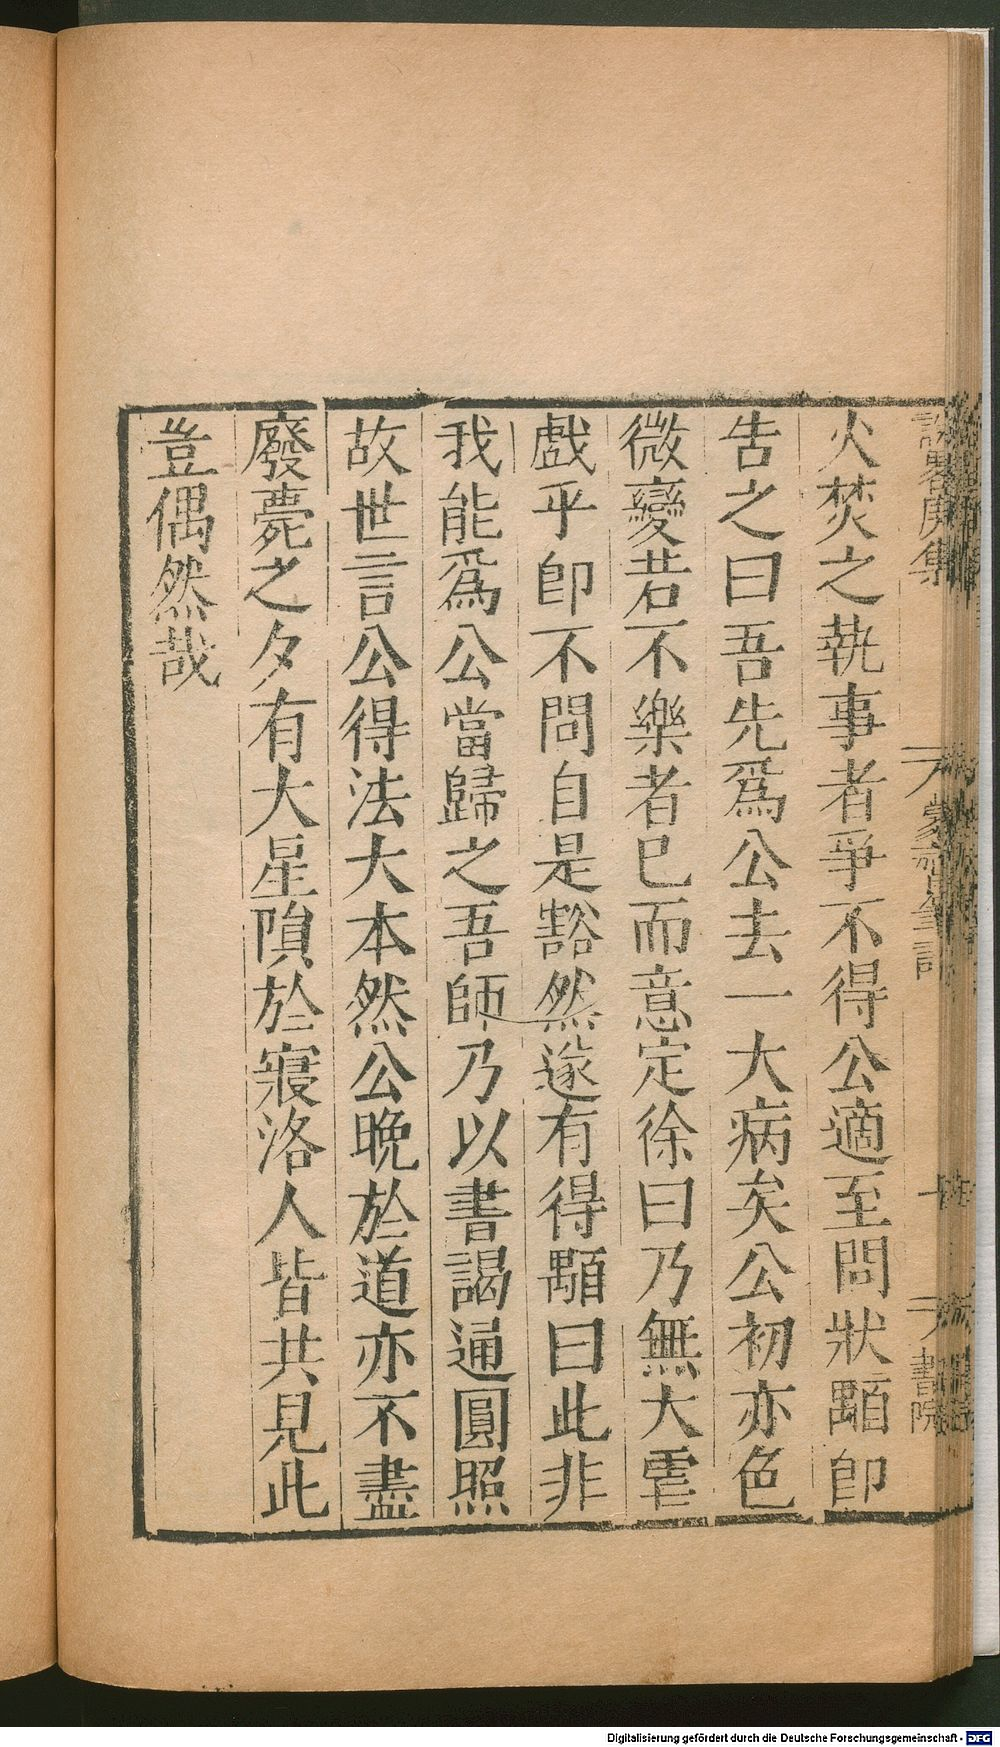 火焚之執事者爭不得公適至問狀顒卽
告之曰吾先爲公去一大病矣公初亦色
微變若不樂者已而意定徐曰乃無大虐
戲乎卽不問自是豁然遂有得顒曰此非
我能爲公當歸之吾師乃以書謁通圓照
故世言公得法大本然公晚於道亦不盡
廢薨之夕有大星隕於寢洛人皆共見此
豈偶然哉
說畧庚集
蒙齋筆談
書院
Digitalisierung gefördert durch die Deutsche Forschungsgemeinschaft - DFG